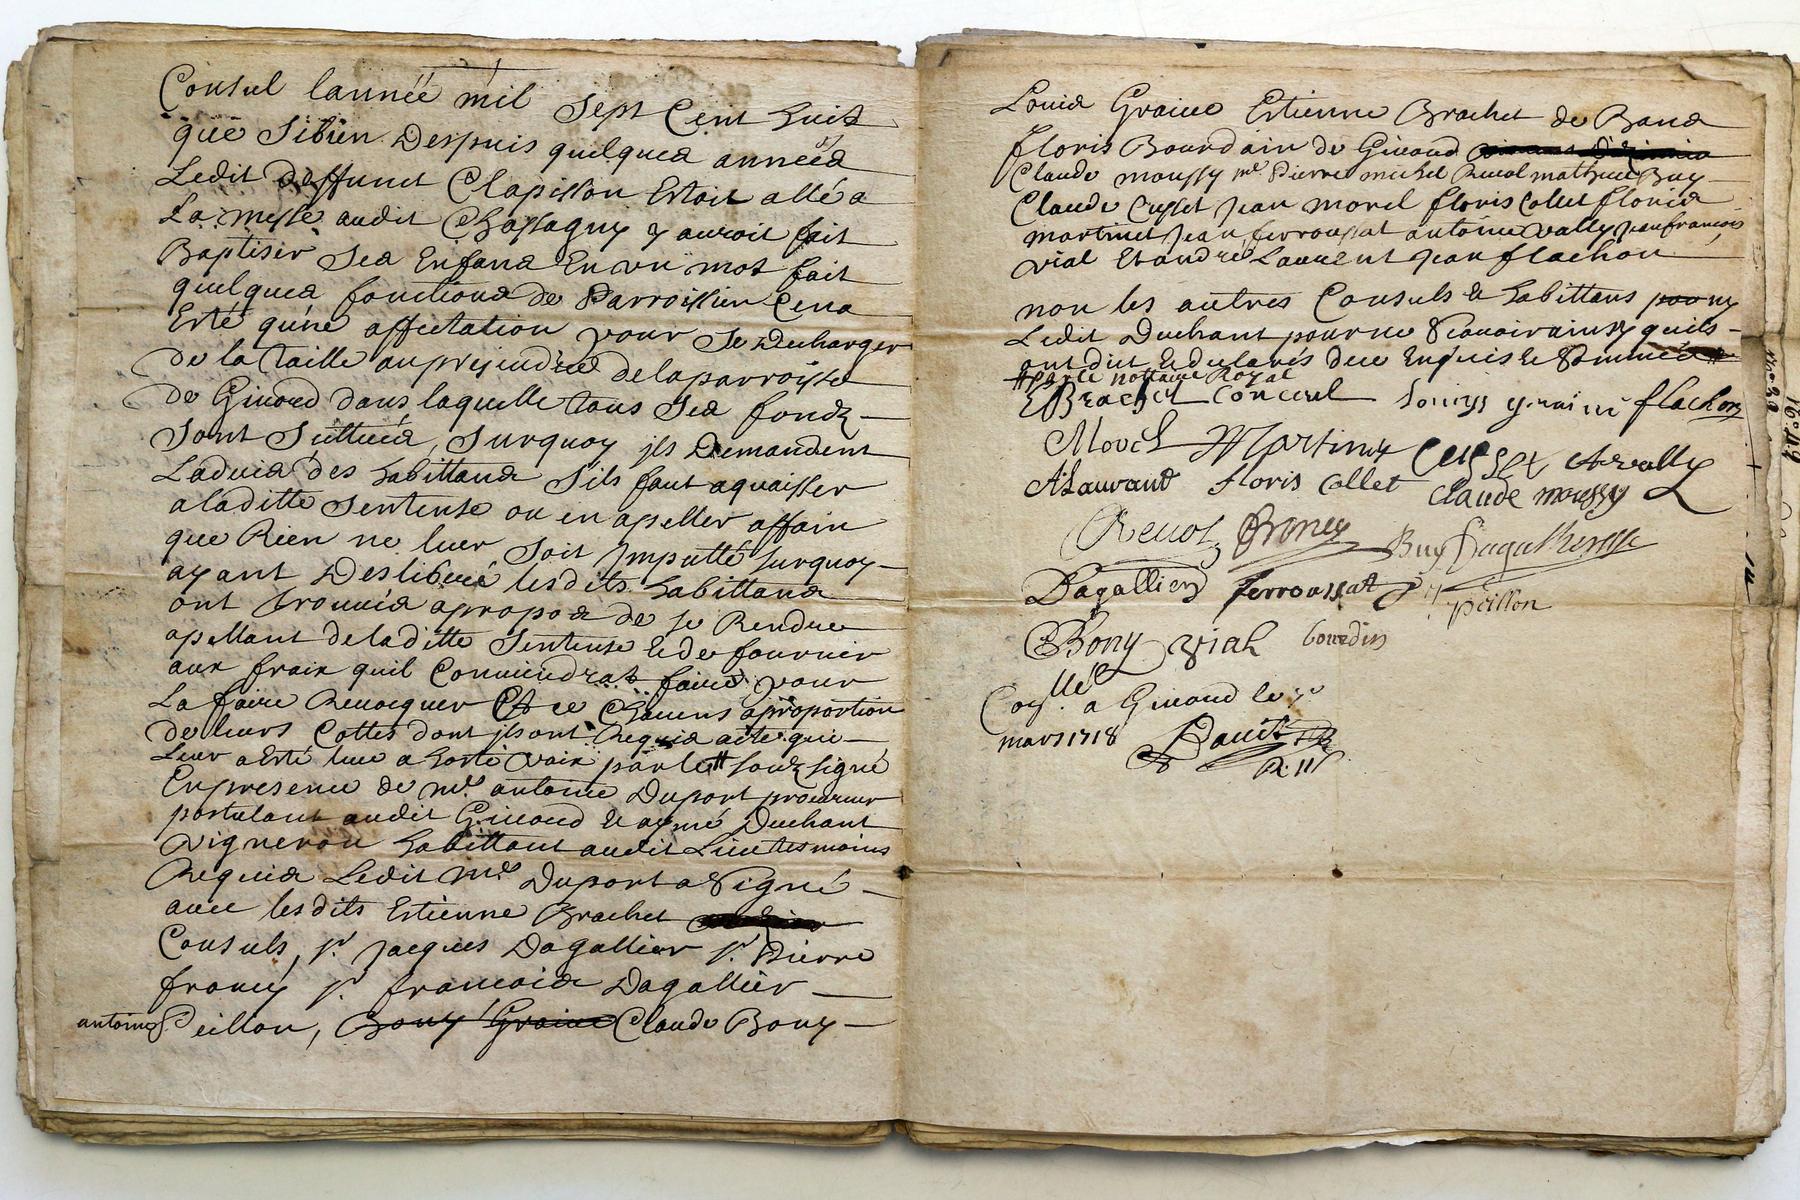 Consul lannéé mil sept Cent huit
que Sibien Despuis quelques années
Ledit deffunct Clapisson Estoit allé a
La messe audit Chassagny y auroit fait
Baptiser Ses Enfans En un mot fait
quelques fonctions de Parroissien Cena
Esté qune affectation pour Se Decharger
de la Taille au prejeudice de la parroisse
de Givord dans laquelle tous Ses fondz
Sont Scittués, Surquoy jls Demandent
Ladvis des habittans Sils faut aquaisser
a laditte Sentense ou en apeller affain
que Rien ne luer Soit jmputté Surquoy
ayant Desliberé lesdits habittans
ont trouvés apropos de se Rendre
apellant de laditte Sentense Et de fournir
aux fraix quil Conviendrat faire pour
La faire Revocquer Et ce Chacuns aproportion
de leurs Cottes dont jls ont Requis acte qui
Leur a Esté leue a horte voix par le # soubzsigné
En presence de mre antoine Duport procureur
postulant audit Givord Et aymé Duchant
vigneron habittant audit Lieu tesmoins
Requis Ledit mre Duport a Signé
avec lesdits Estienne Brachet
Consuls, sr. Jacques Dagallier sr. Pierre
francois Dagallier
antoine Peillon, Bony Graine Claude Bony
Louis Graine Estienne Brachet de Bans
floris Bourdain de Givord
Claude moussy mre Pierre michel Revol mathieu Buy
Claude Cusset Jean morel floris Collet floris
martinet Jean ferroussat antoine vally jean francois
vial Et andré Laurent Jean flachon
non les autres Consuls & habittans pour ny
Ledit Duchant pour ne Scavoir ainsy quils
ont dict Et declarés dece Enquis & Sommés #
# par le nottaire Royal
EBrachet Conceul Louys graine flachon
Morel Martinet Cusset A vally
A Laurant floris Collet Claude moussy
Revol Buy
Dagallier ferroussat peillon
CBony vial bourdin
Coll. a Givord le
mars 1718